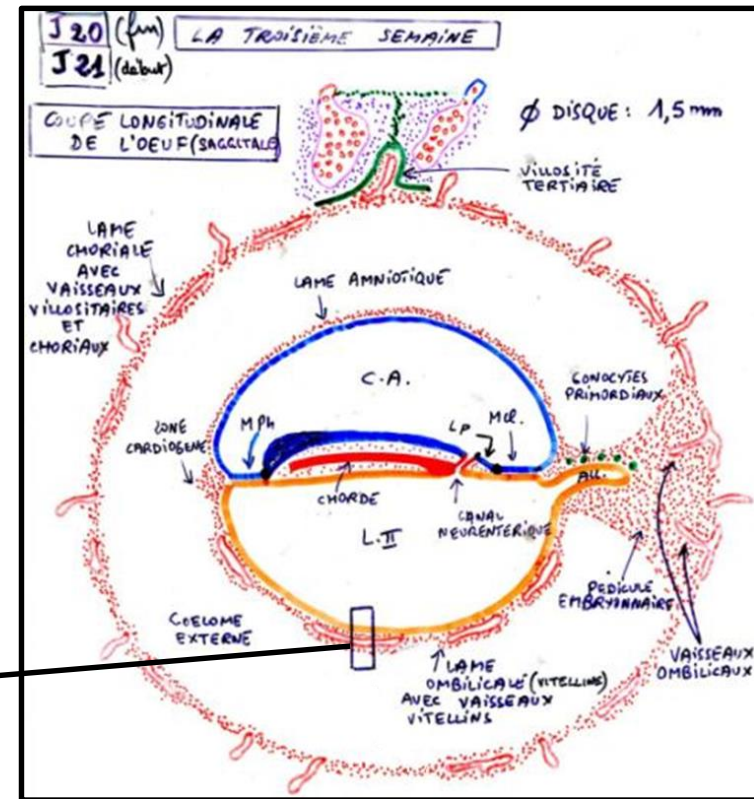 J 20 (fin)
J 21 (début)
LA TROISIÈME SEMAINE
COUPE LONGITUDINALE
DE L'OEUF (SAGGITALE)
Φ DISQUE : 1,5 mm
VILLOSITÉ
TERTIAIRE
LAME
CHORIALE
AVEC
VAISSEAUX
VILLOSITAIRES
ET
CHORIAUX
LAME AMNIOTIQUE
C.A.
GONOCYTES
PRIMORDIAUX
ZONE
CARDIOGENE
MPh
LP
Mcl.
ALL.
CHORDE
CANAL
NEURENTÉRIQUE
L.II
PEDICULE
EMBRYONNAIRE
COELOME
EXTERNE
VAISSEAUX
OMBILICAUX
LAME
OMBILICALE (VITELLINS)
AVEC VAISSEAUX
VITELLINS